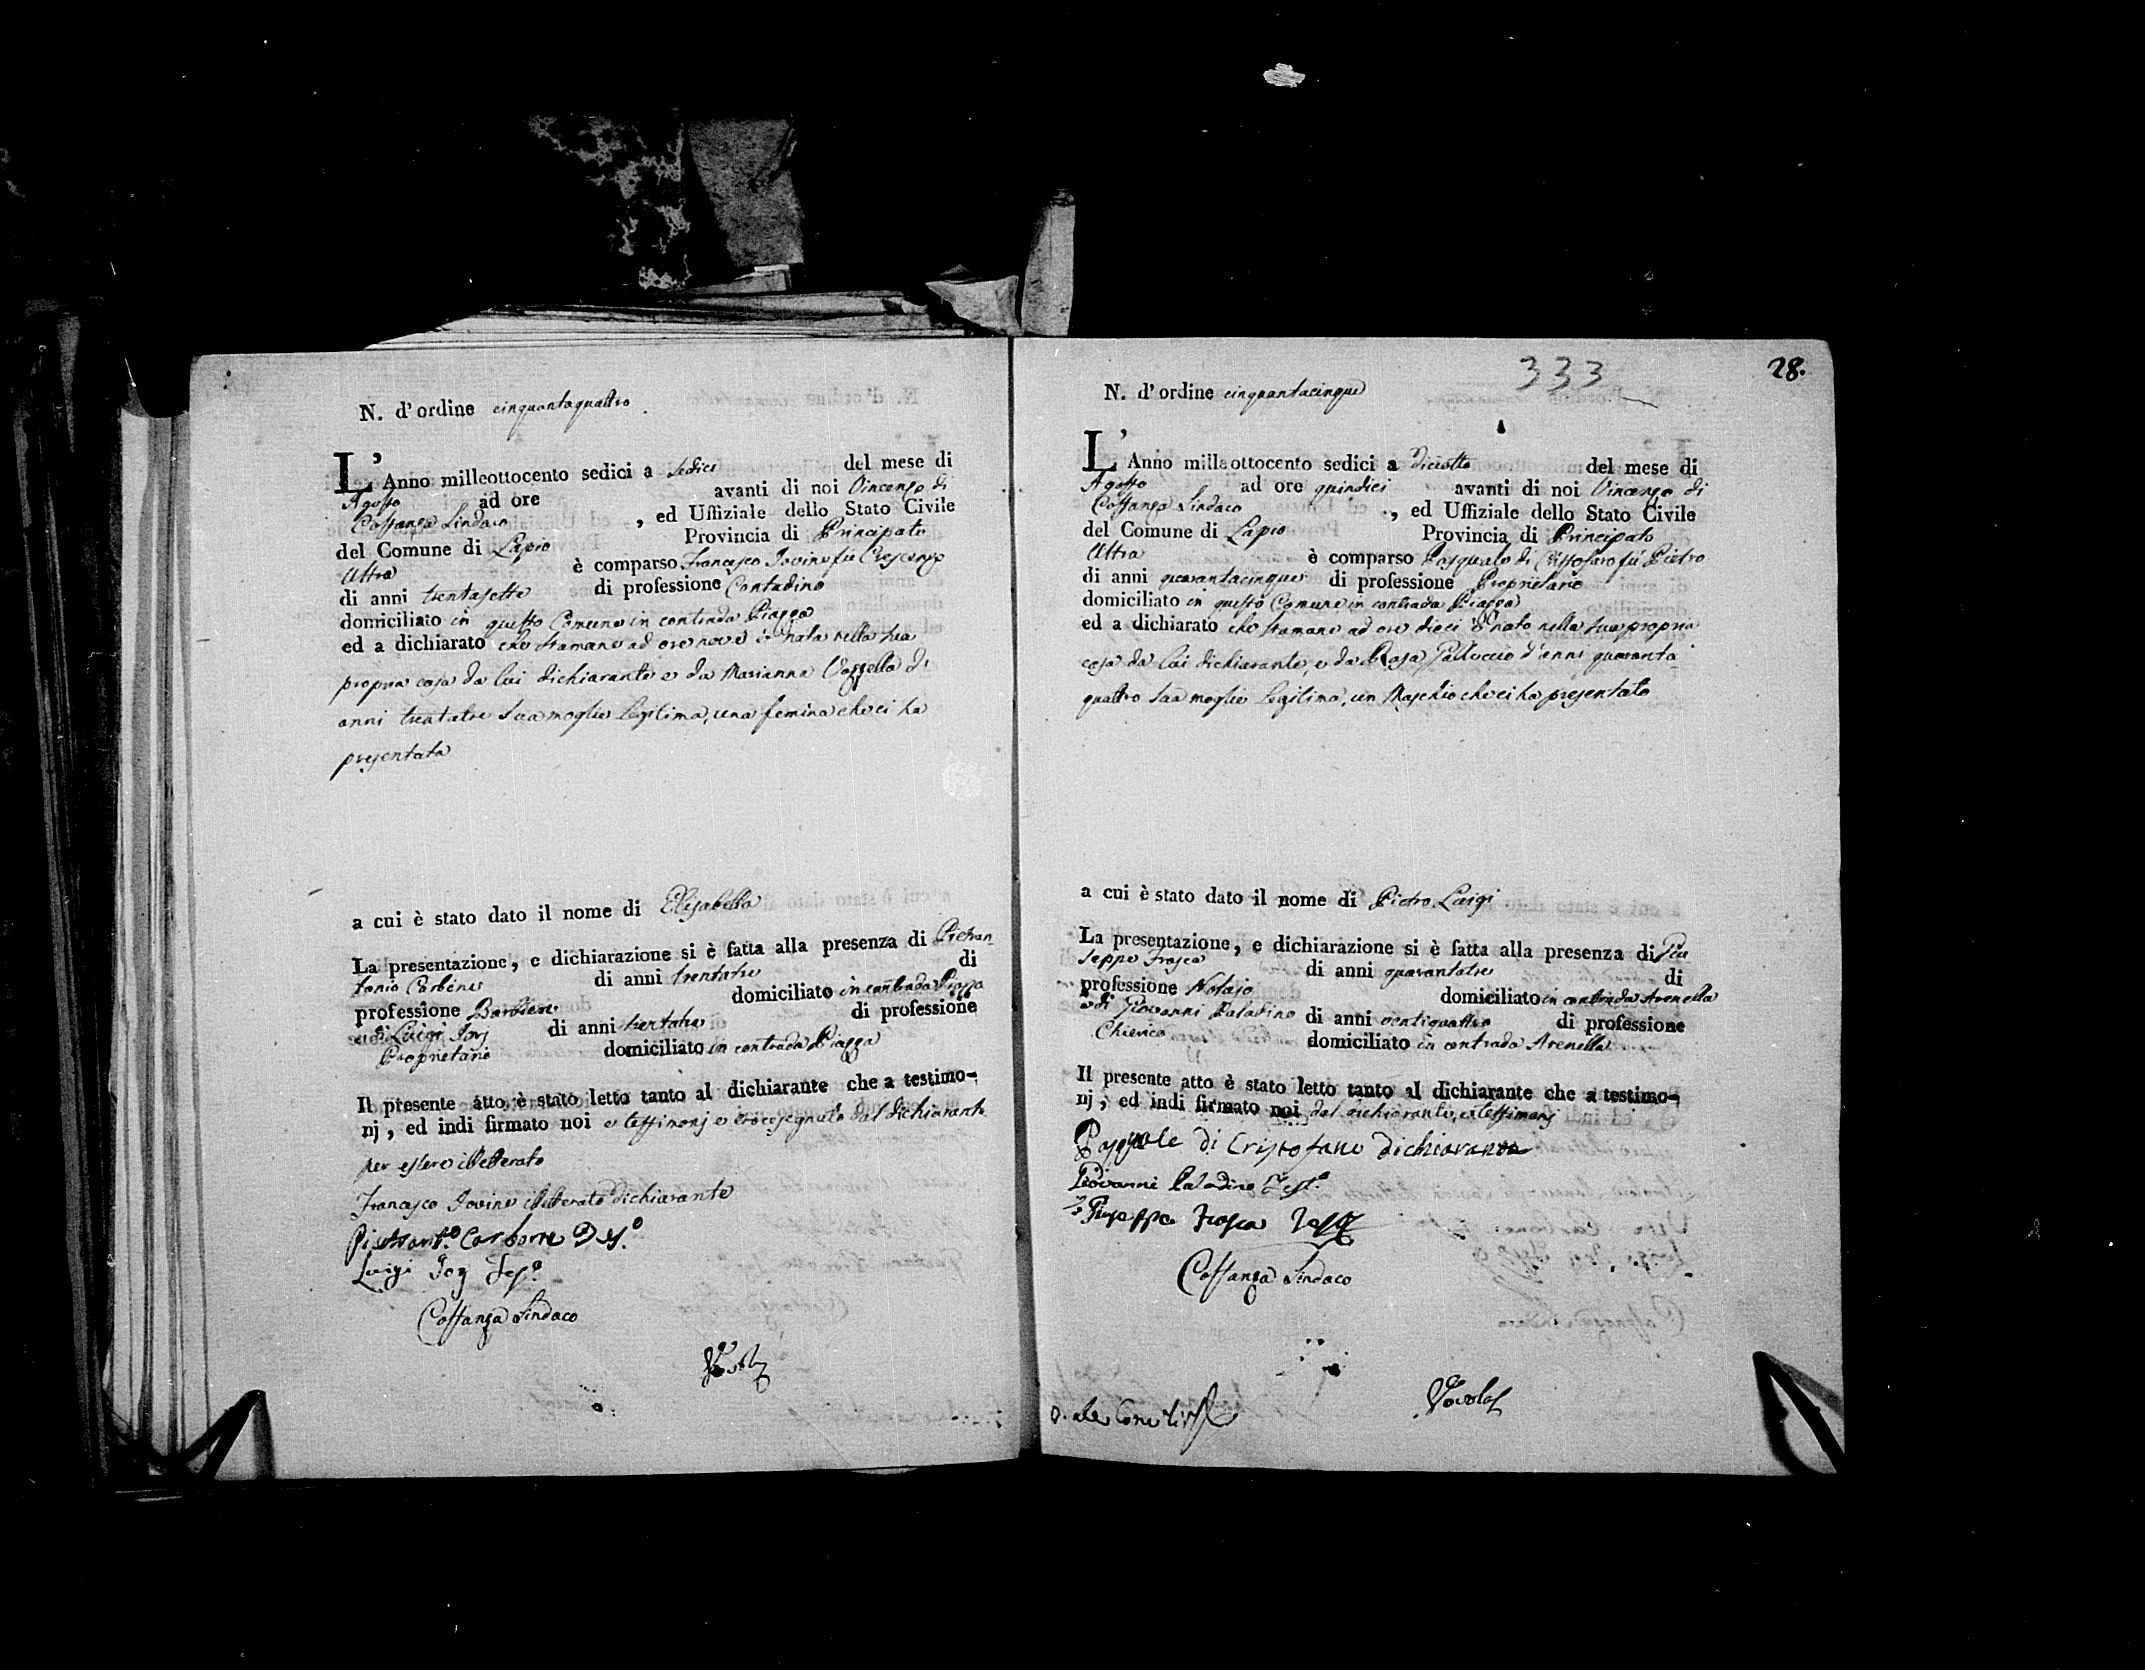 N. d'ordine cinquantaquattro
L'Anno milleottocento sedici a sedici del mese di
Agosto ad ore avanti di noi Vincenzo di
Costanza Sindaco , ed Uffiziale dello Stato Civile
del Comune di Lapio Provincia di Principato
Ultra è comparso Francesco Iovine fu Crescenzo
di anni trentasette di professione Contadino
domiciliato in questo Comune in contrada Piazza
ed a dichiarato che stamane ad ore nove è nata nella sua
propria casa da lui dichiarante e da Marianna Vozzella di
anni trentatre sua moglie legitima, una femina che ci ha
presentata
a cui è stato dato il nome di Elisabetta
La presentazione, e dichiarazione si è fatta alla presenza di Pietran
tonio Carbone di anni trentatre di
professione Barbiere domiciliato in contrada Piazza
e di Luigi di anni trentatre di professione
Proprietario domiciliato in contrada Piazza
Il presente atto, è stato letto tanto al dichiarante che a testimo-
nj, ed indi firmato noi e testimonj e crocesegnato dal dichiarante
per essere illetterato
Francesco Iovine illetterato dichiarante
Pietrant.o Carbone
Luigi
Costanza Sindaco
333
28.
N. d'ordine cinquantacinque
L'Anno milleottocento sedici a diciotto del mese di
Agosto ad ore quindici avanti di noi Vincenzo di
Costanza Sindaco ., ed Uffiziale dello Stato Civile
del Comune di Lapio Provincia di Principato
Ultra è comparso Pasquale di Cristofaro fu Pietro
di anni quarantacinque di professione Proprietario
domiciliato in questo Comune in contrada Piazza
ed a dichiarato che stamane ad ore dieci è nato nella sua propria
casa da lui dichiarante, e da Rosa Galluccio d'anni quaranta
quattro sua moglie legitima, un Maschio che ci ha presentato
a cui è stato dato il nome di Pietro Luigi
La presentazione, e dichiarazione si è fatta alla presenza di Giu
seppe Frasca di anni quarantatre di
professione Notajo domiciliato in contrada Arenella
e di Giovanni Paladino di anni ventiquattro di professione
Chierico domiciliato in contrada Arenella
Il presente atto è stato letto tanto al dichiarante che a testimo-
nj, ed indi firmato noi dal dichiarante, e testimonj
Pasquale di Cristofaro dichiarante
Giovanni Paladino Test.o
Giuseppe Frasca
Costanza Sindaco